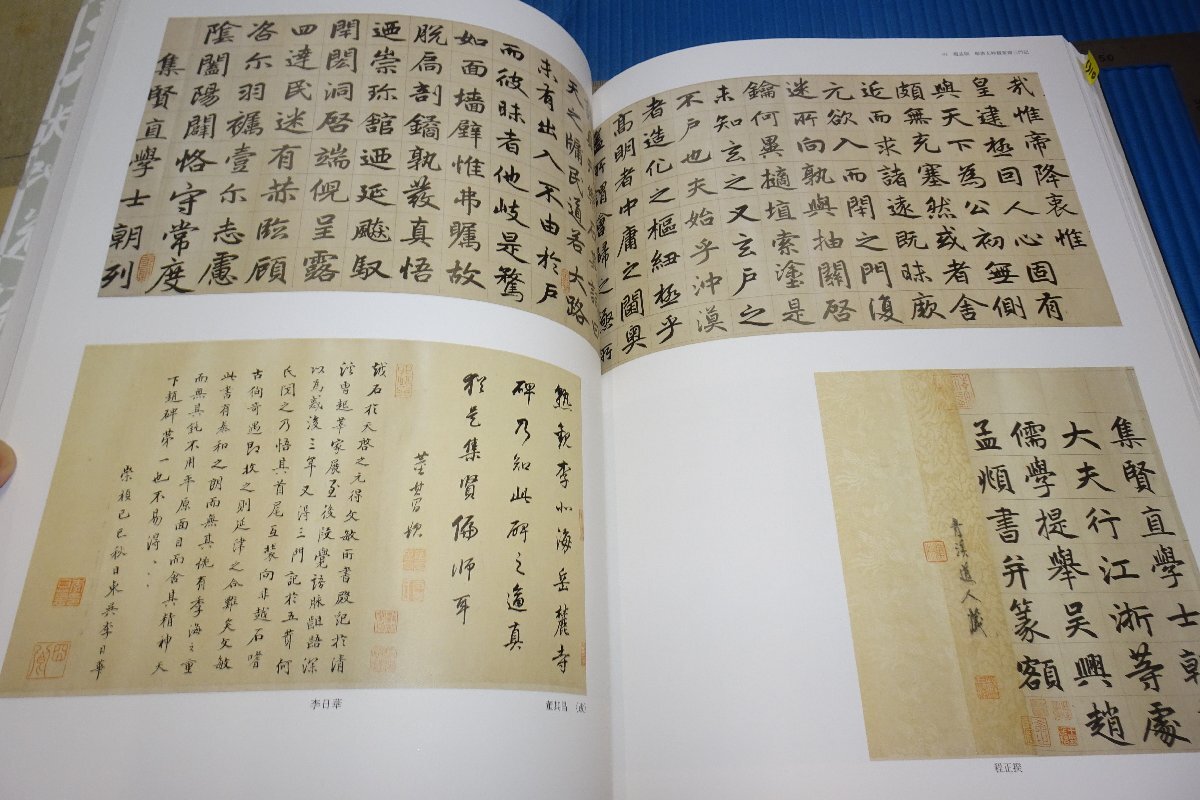 哉惟帝降衷惟
皇建極囘人心固有
與天下為公初無側
頗無充塞然或者舍
近而求諸遠既昧厥
元欲入而閉之門復
迷所向孰與抽關啓
鑰何異擿埴索塗是
未知玄之又玄戶之
不戶也夫始乎沖漠
者造化之樞紐極乎
高明者中庸之閫奧
所謂會歸之極所
天之牖民道若大路
未有出入不由於戶
而彼昧者他岐是騖
如面墻壁惟弗矚故
脫扃剖鐍孰發真悟
迺崇珎館迺延飈馭
閈閎洞啓端倪呈露
四達民迷有恭臨顧
咨尓羽襮壹尓志慮
陰闔陽闢恪守常度
集賢直學士朝列
集賢直學士朝
大夫行江浙等處
儒學提舉吳興趙
孟頫書并篆額
青溪道人藏
程正揆
熟觀李北海岳麓寺
碑乃知此碑之逼真
猶是集賢偏師耳
董其昌
越石於天啓之元得文敏所書殿記於清
曹起莘家展至後陵覺諸脉齟齬深
以為感後三年又得三門記於五茸何
氏閱之乃悟其首尾互裝向非越石嗜
古徇奇遇即收之則延津之合難矣文敏
此書有泰和之朗而無其佻有季海之重
而無其鈍不用平原面目而含其精神天
下趙碑第一也不易得、、
崇禎己巳秋日東吳李日華
董其昌
李日華